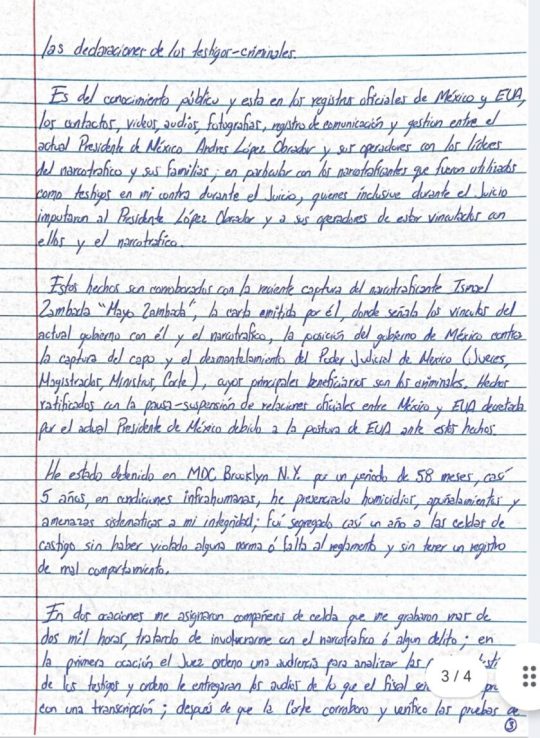 las declaraciones de los testigos-criminales.
Es del conocimiento público y esta en los registros oficiales de México y EUA,
los contactos, videos, audios, fotografías, registro de comunicación y gestion entre el
actual Presidente de México Andres López Obrador y sus operadores con los líderes
del narcotrafico y sus familias; en particular con los narcotraficantes que fueron utilizados
como testigos en mi contra durante el Juicio, quienes inclusive durante el Juicio
imputaron al Presidente López Obrador y a sus operadores de estar vinculados con
ellos y el narcotrafico.
Estos hechos son corroborados con la reciente captura del narcotraficante Ismael
Zambada "Mayo Zambada", la carta emitida por él, donde señala los vinculos del
actual gobierno con él y el narcotrafico, la posición del gobierno de México contra
la captura del capo y el desmantelamiento del Poder Judicial de México (Jueces,
Magistrados, Ministros, Corte), cuyos principales beneficiarios son los criminales. Hechos
ratificados con la pausa-suspensión de relaciones oficiales entre México y EUA decretada
por el actual Presidente de México debido a la postura de EUA ante estos hechos.
He estado detenido en MDC Brooklyn N.Y. por un periodo de 58 meses, casí
5 años, en condiciones infrahumanas, he presenciado homicidios, apuñalamientos y
amenazas sistematicas a mi integridad; Fuí segregado casí un año a las celdas de
castigo sin haber violado alguna norma ó falta al reglamento y sin tener un registro
de mal comportamiento.
En dos ocaciones me asignaron compañeros de celda que me grabaron mas de
dos mil horas, tratando de involucrarme con el narcotrafico ó algun delito; en
la primera ocación el Juez ordeno una audiencia para analizar las
de los testigos y ordeno le entregaran los audios de lo que el fiscal
con una transcripción; después de que la Corte corroboro y verifico las pruebas
3 / 4
3